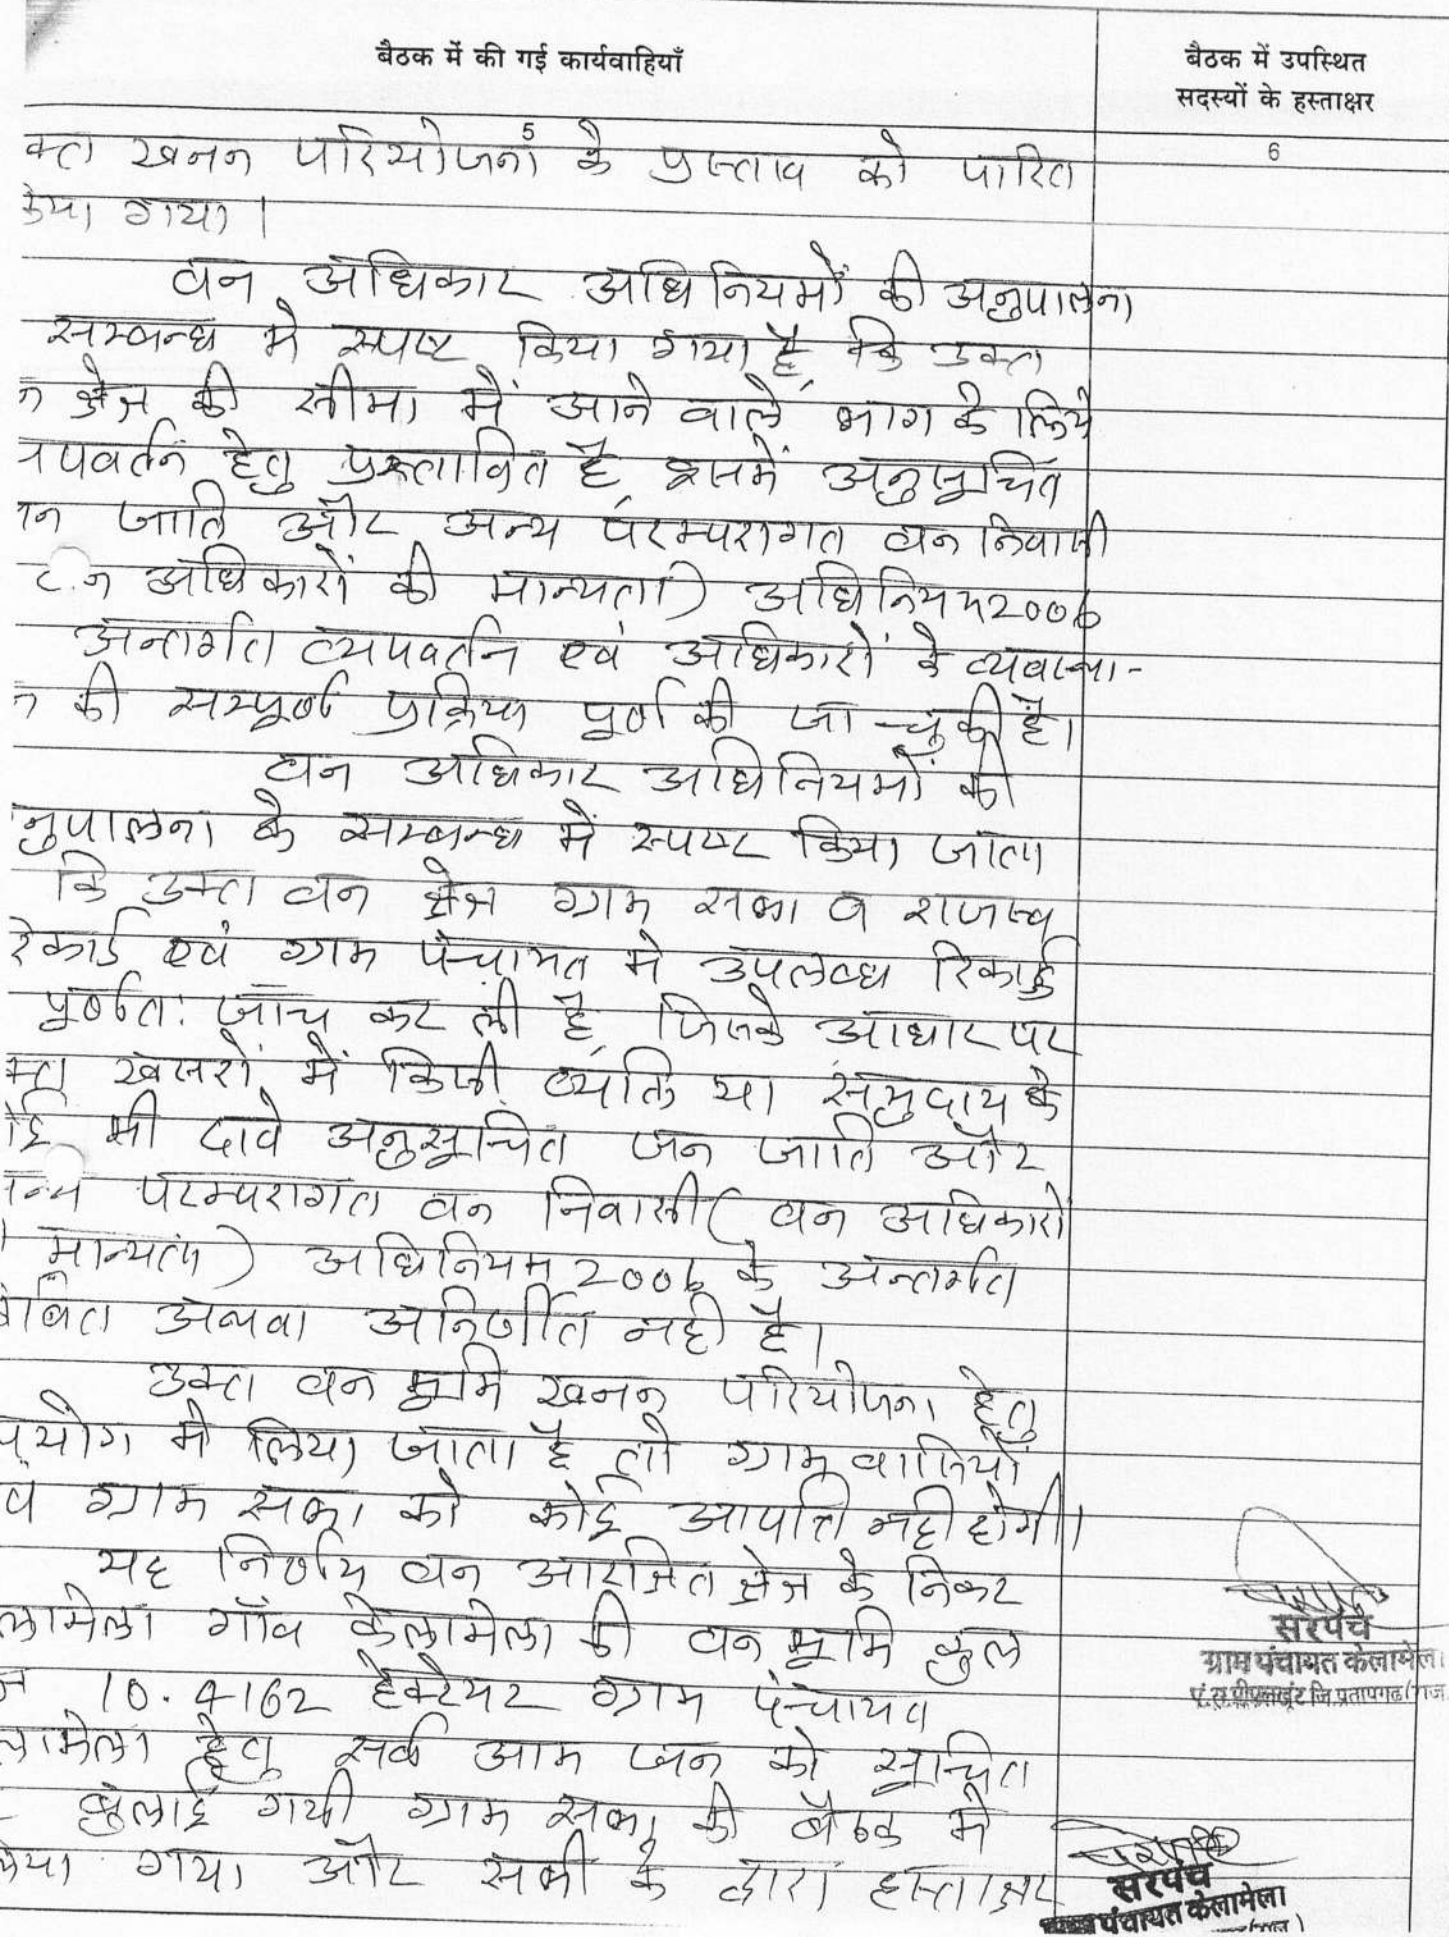 बैठक में की गई कार्यवाहियाँ
बैठक में उपस्थित
सदस्यों के हस्ताक्षर
5
6
क्त खनन परियोजना के प्रस्ताव को पारित
केया गया।
वन अधिकार अधिनियमों की अनुपालना
सम्बन्ध मे स्पष्ट किया गया है कि उक्त
न क्षेत्र की सीमा में आने वाले भाग के लिये
यपवर्तन हेतु प्रस्तावित है इसमें अनुसूचित
जन जाति और अन्य परम्परागत वन निवासी
न अधिकारों की मान्यता) अधिनियम 2006
अन्तर्गत व्यपवर्तन एवं अधिकारों के व्यवस्था-
न की सम्पूर्ण प्रक्रिया पूर्ण की जा चुकी है।
वन अधिकार अधिनियमों की
नुपालना के सम्बन्ध में स्पष्ट किया जाता
कि उक्त वन क्षेत्र ग्राम सभा व राजस्व
रेकार्ड एवं ग्राम पंचायत मे उपलब्ध रिकार्ड
पूर्णत: जाँच कर ली है जिसके आधार पर
क्त खसरों में किसी व्यक्ति या समुदाय के
ोई भी दावे अनुसूचित जन जाति और
न्य परम्परागत वन निवासी (वन अधिकारों
मान्यता) अधिनियम 2006 के अन्तर्गत
ंबित अथवा अनिर्णीत नही है।
उक्त वन भूमि खनन परियोजना हेतु
पयोग मे लिया जाता है तो ग्राम वासियों
व ग्राम सभा को कोई आपत्ति नही होगी।
यह निर्णय वन आरक्षित क्षेत्र के निकट
लामेला गाँव केलामेला की वन भूमि कुल
10.4162 हेक्टेयर ग्राम पंचायत
लामेला हेतु सर्व आम जन को सूचित
बुलाई गयी ग्राम सभा की बैठक मे
लिया गया और सभी के द्वारा हस्ताक्षर
सरपंच
ग्राम पंचायत केलामेला
पं.स.पीपलखूंट जि.प्रतापगढ(राज.
सरपंच
पंचायत केलामेला